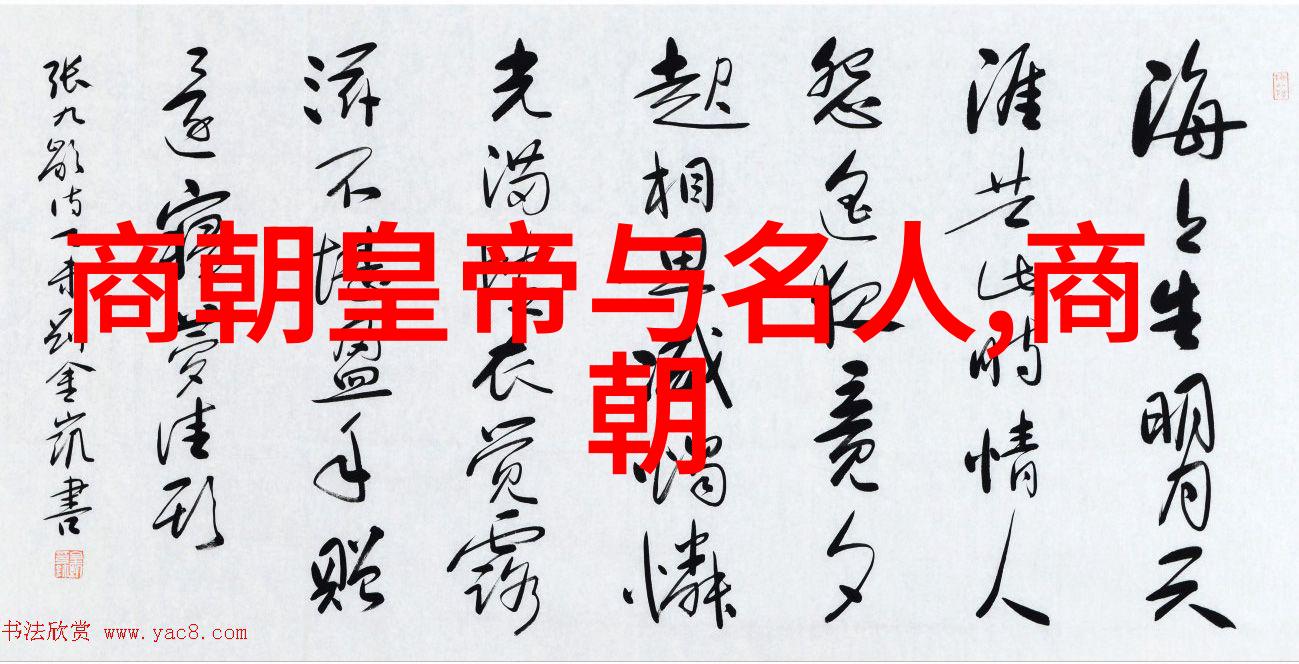 商朝皇帝与名人,商
朝
海上生明月天
涯共此時情人
怨遥夜竟夕
起相思滅燭憐
光满披衣觉露
滋不堪盈手赠
還寝夢佳期
张九龄诗一首金凯書
书法欣赏 www.yac8.com